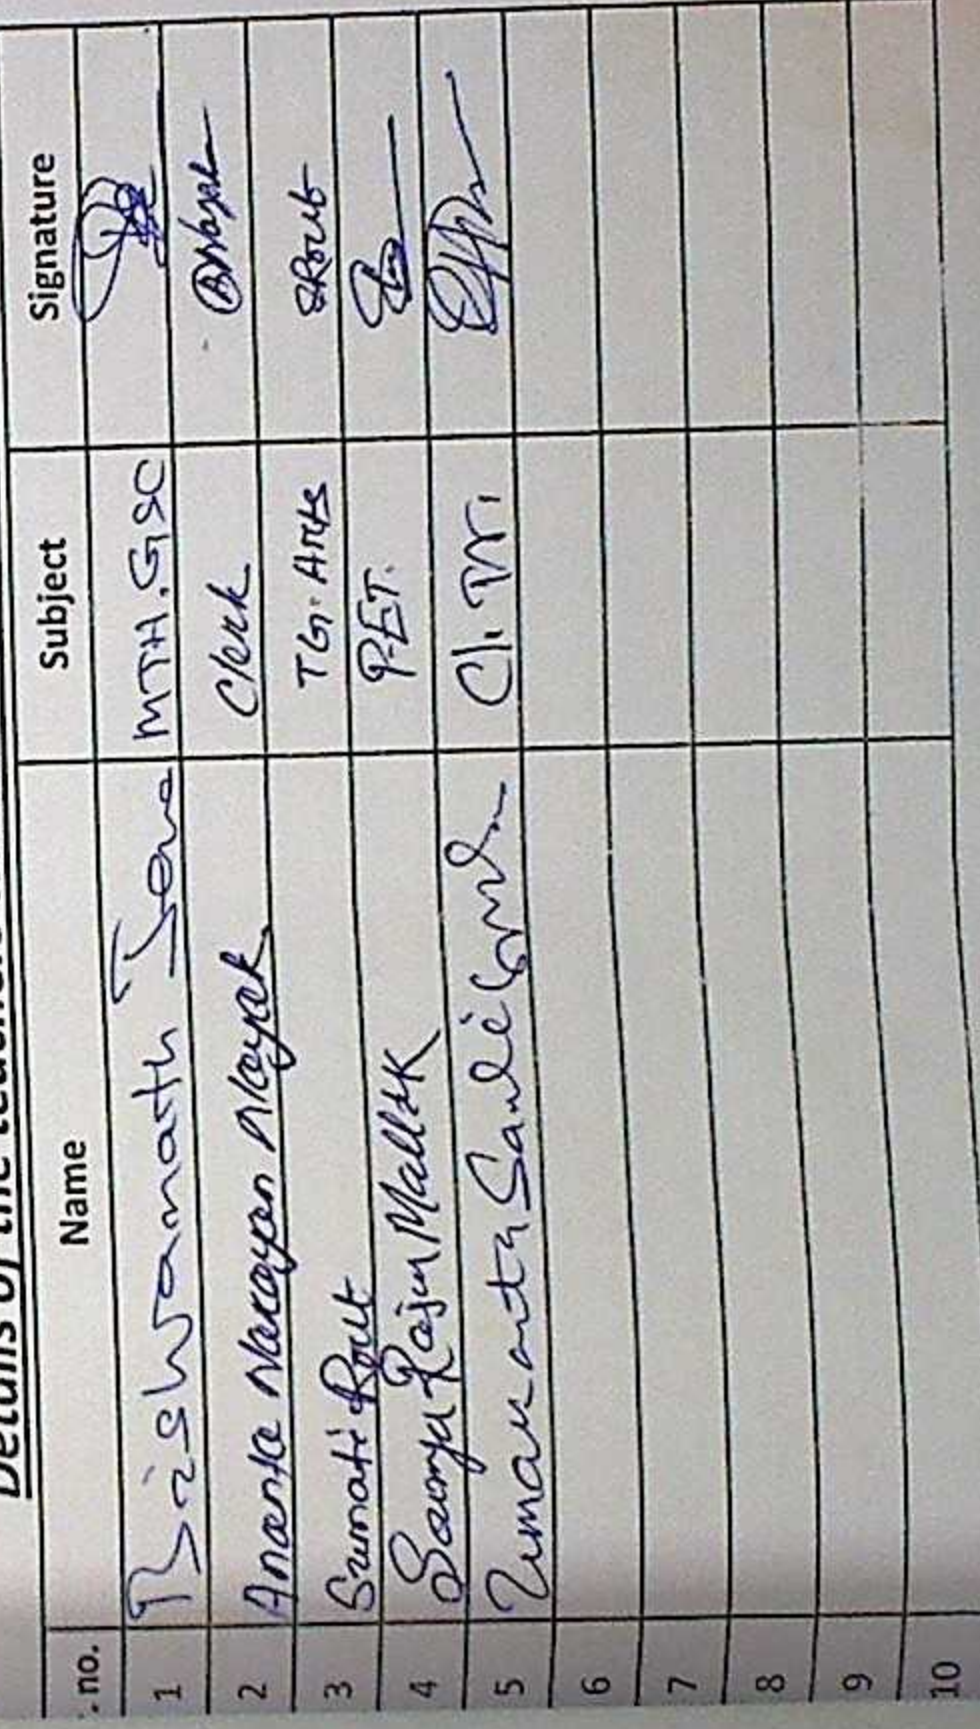 Details of the
. no. Name Subject Signature
1 Biswanath Jena MTH.GSC
2 Ananta Narayan Nayak Clerk ANayak
3 Sumati Rout TG. Arts SRout
4 Saumya Rajan Mallik P.E.T.
5 Umakanta
6
7
8
9
10